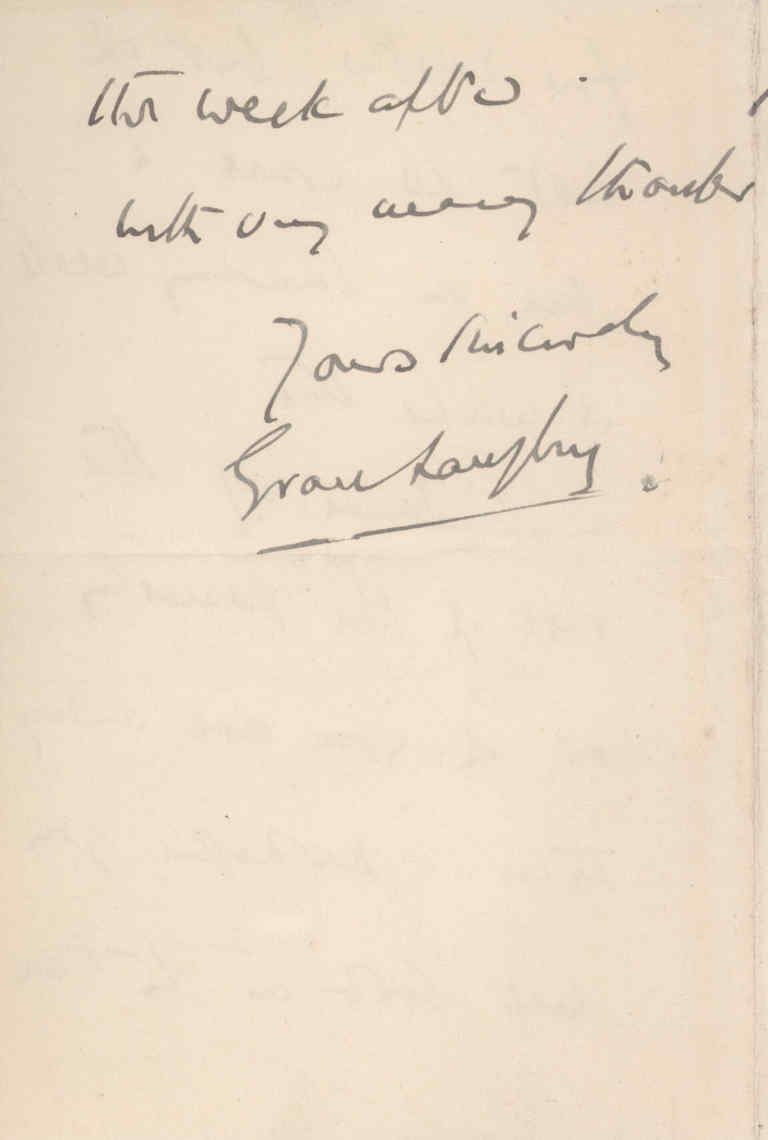 the week after.
with very many thanks
Yours sincerely